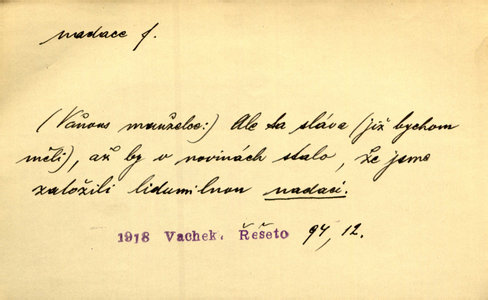 nadace f.
(Vaňous manželce:) Ale ta sláva (již bychom
měli), až by v novinách stalo, že jsme
založili lidumilnou nadaci.
1918 Vachek. Řešeto 94, 12.